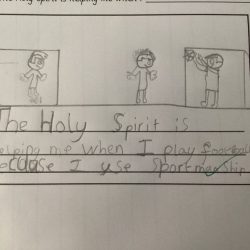 The Holy Spirit is helping me when
The Holy Spirit is
helping me when I play football
because I use Sportmanship